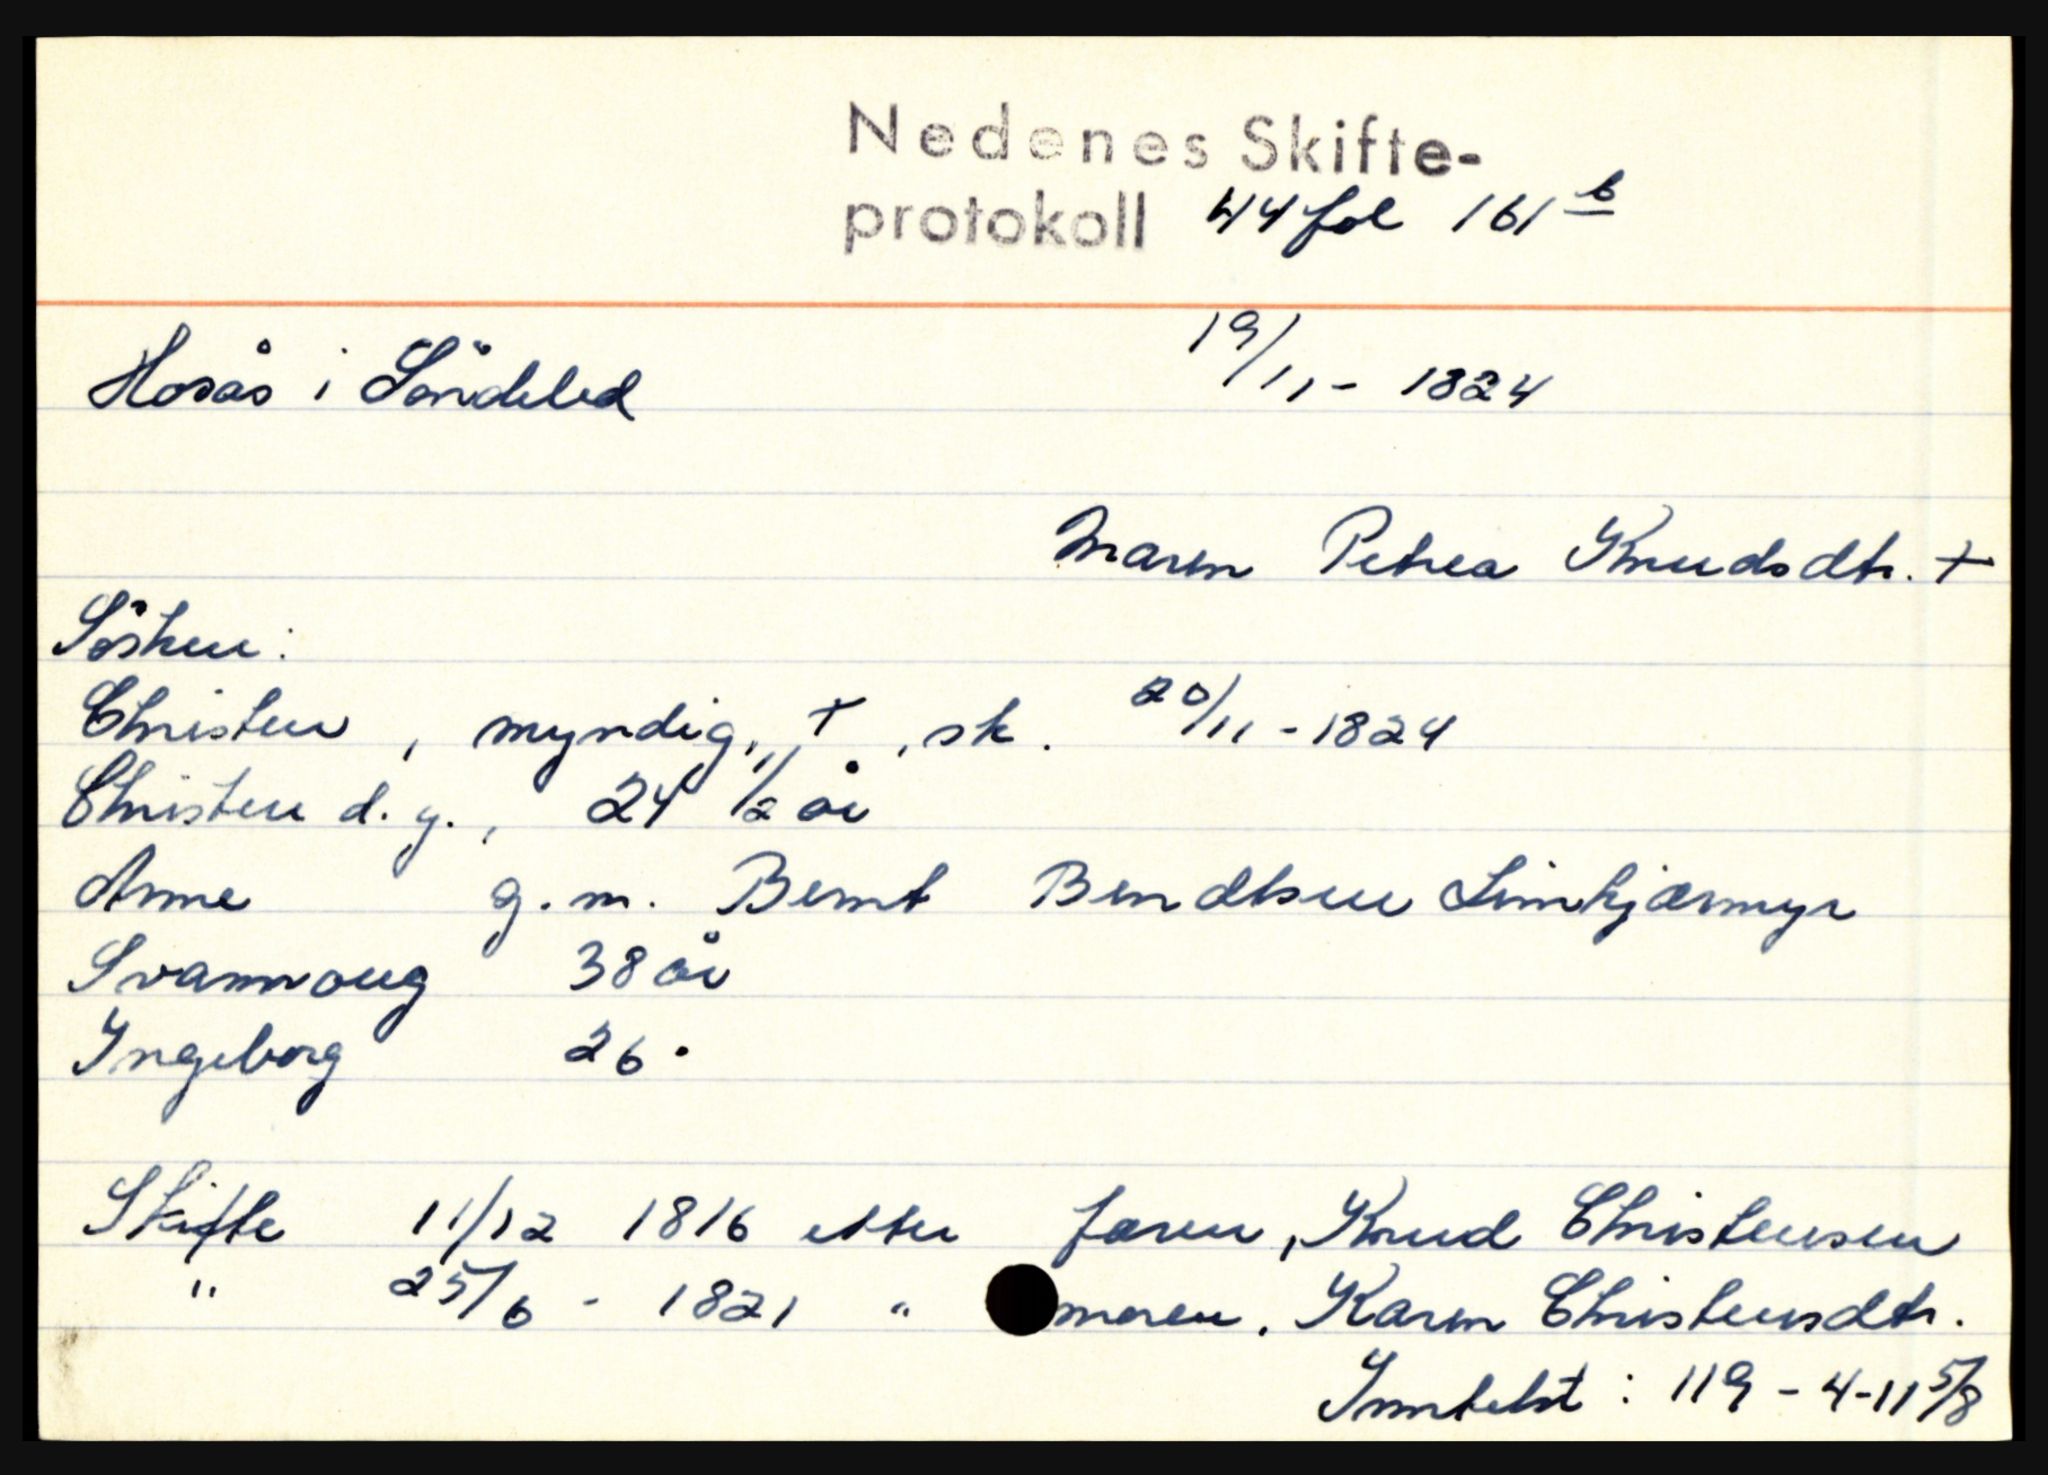 Nedenes Skifte-
protokoll 44 fol 161 b
Hosås i Söndeled 19/11 - 1824
Maren Petrea Knudsdtr. +
Sösken:
Christen , myndig, + , sk. 20/11 - 1824
Christen d. y. , 24 1/2 år
Anne g. m. Bernt Bendtsen Limkjærmyr
Svannoug 38 år
Ingeborg 26 "
Skifte 11/12 1816 etter faren, Knud Christensen
" 25/6 - 1821 " moren, Karen Christensdtr.
Inntekt : 119 - 4 - 11 5/8